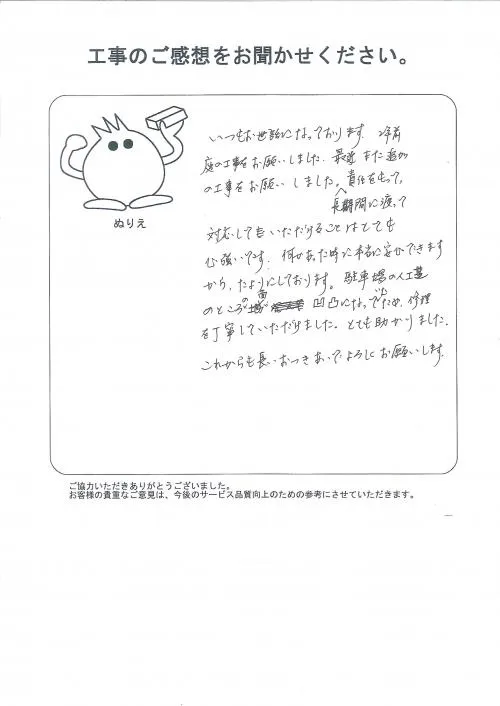 工事のご感想をお聞かせください。
いつもお世話になっております。2年前
庭の工事をお願いしました。最近また追加
の工事をお願いしました。責任をもって、
長期間に渡って
対応していただけることはとても
心強いです。何かあった時に本当に安心できます
から、たよりにしております。駐車場の人工芝
のところの面が 凹凸になってでいたため、修理
を丁寧していただけました。とても助かりました。
これからも長いおつきあいでよろしくお願いします。
ぬりえ
ご協力いただきありがとうございました。
お客様の貴重なご意見は、今後のサービス品質向上のための参考にさせていただきます。